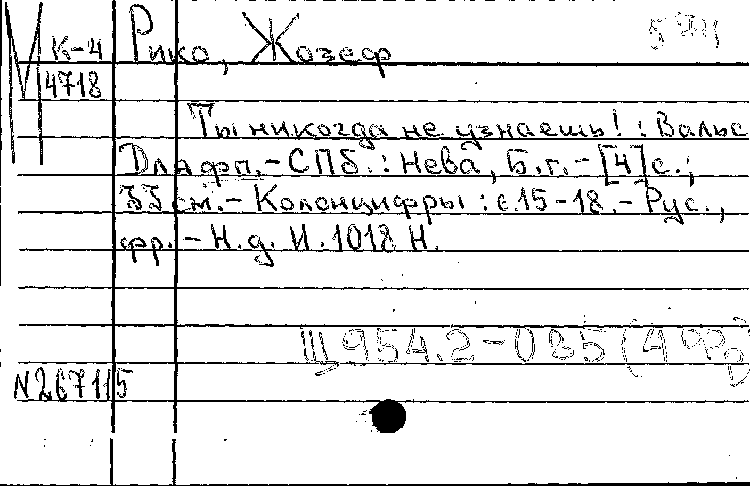 М К-4 Рико, Жозеф
4718
Ты никогда не узнаешь! : Вальс
Для фп. - СПб. : Нева, Б.г. - [4] с.;
33 см. - Колонцифры : с.15-18. - Рус.,
фр. - Н.д. И.1018 Н.
Щ954.2-085(4Фр)
N267115